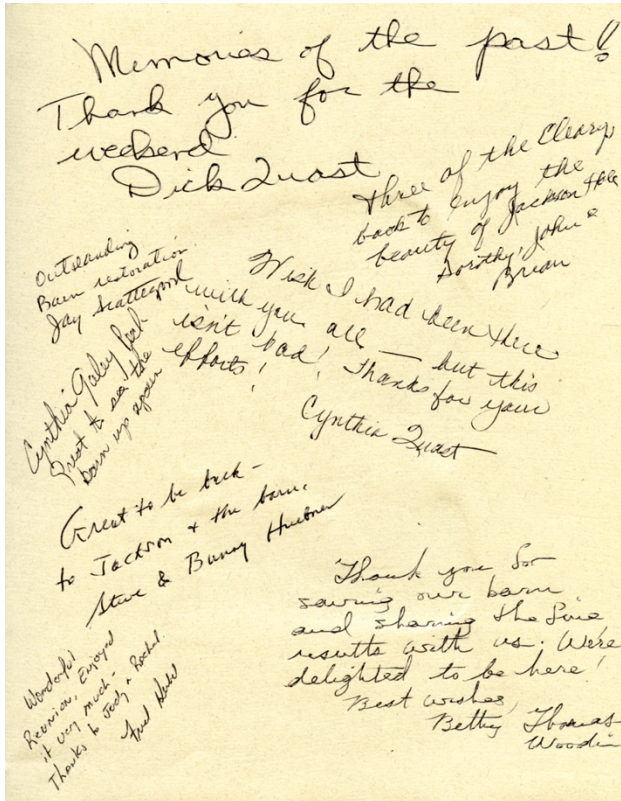 Memories of the past!!
Thank you for the
weekend
Dick Quast
Three of the Clearys
back to enjoy the
beauty of Jackson Hole
Dorothy, John &
Brian
Outstanding
Barn restoration.
Jay
Wish I had been there
with you all — but this
isn't bad! Thanks for your
efforts!
Cynthia Quast
Cynthia Galey Peck
Great to see the
barn up again
Great to be back -
to Jackson & the barn.
Steve & Bunny Huebner
Thank you for
saving our barn
and sharing the fine
results with us. We're
delighted to be here!
Best wishes,
Betty Thomas
Woodin
Wonderful
Reunion, Enjoyed
it very much -
Thanks to Jody & Rachel.
Fred